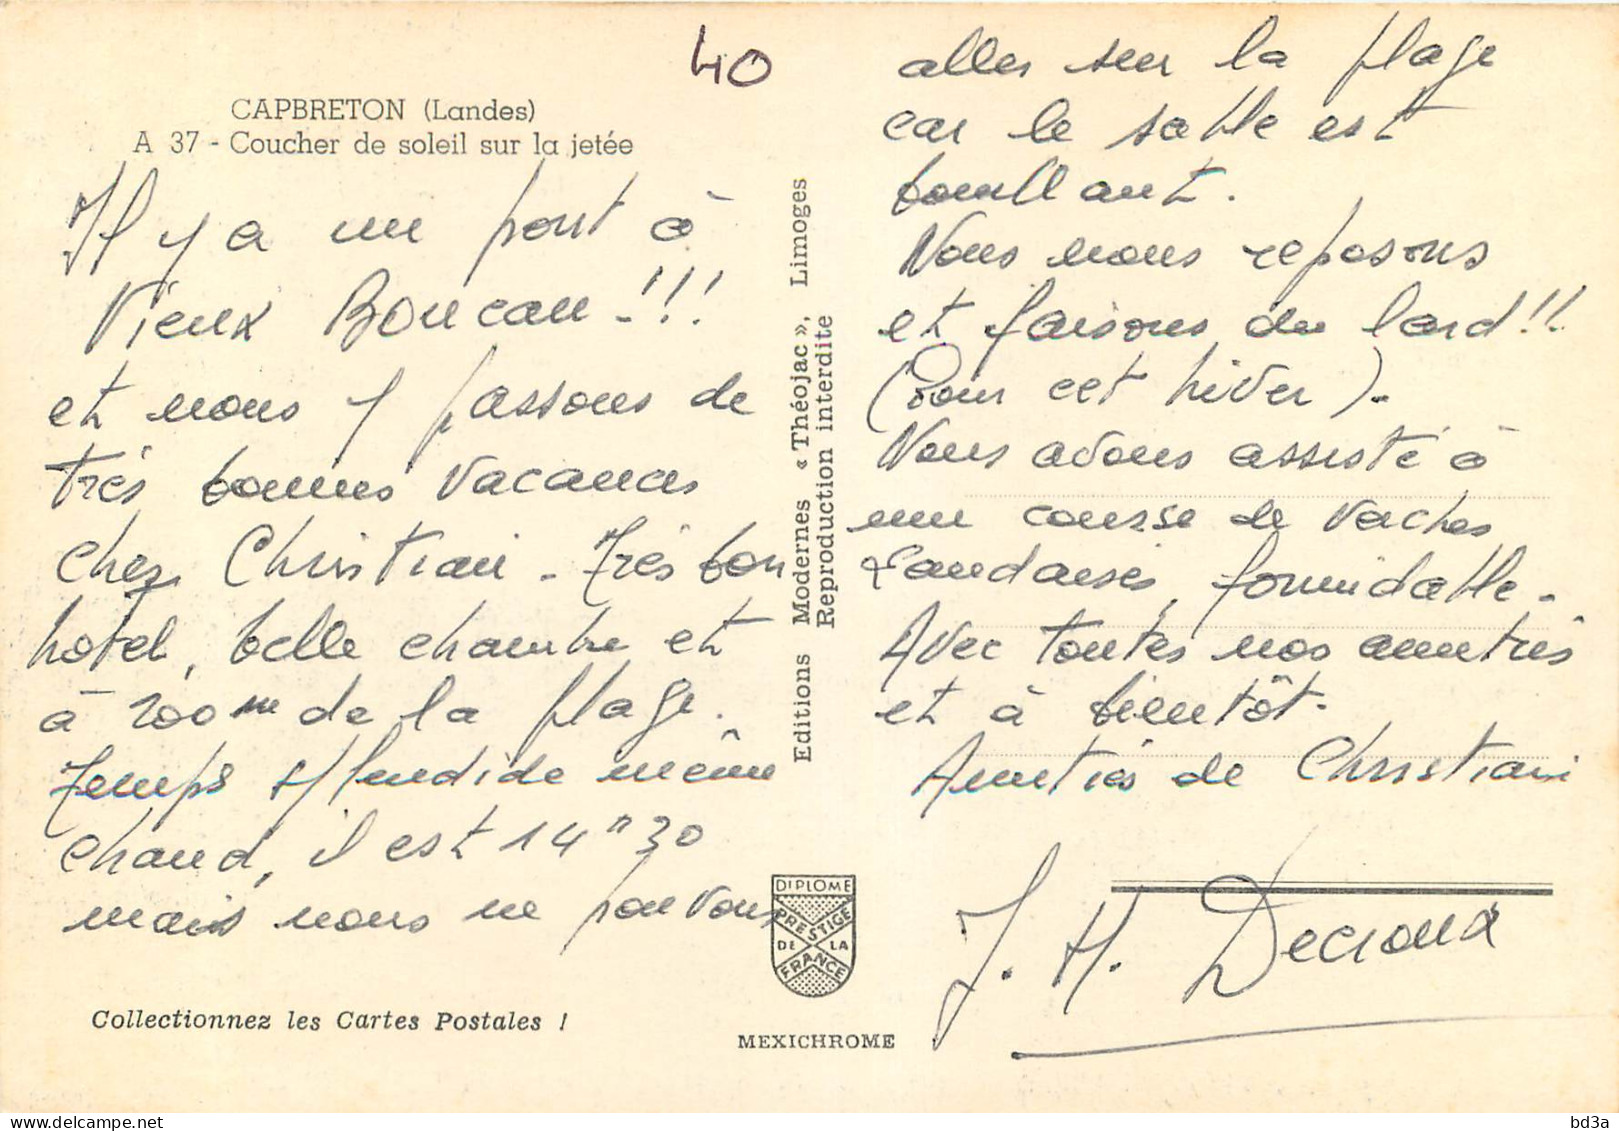 40
CAPBRETON (Landes)
A 37 - Coucher de soleil sur la jetée
Il y a un pont à
Vieux Boucau-!!!
et nous y passons de
très bonnes vacances
chez Christian - Très bon
hotel, belle chambre et
à 200 m de la plage.
Temps splendide même
chaud, il est 14 h 30
mais nous ne pouvons
Collectionnez les Cartes Postales !
Editions Modernes « Théojac », Limoges
Reproduction interdite
DIPLOME
PRESTIGE
DE LA
FRANCE
MEXICHROME
aller sur la plage
car le sable est
bouillant.
Nous nous reposons
et faisons du lard!!
(Pour cet hiver).-
Nous avons assisté à
une course de vaches
Landaises, formidable-
Avec toutes nos amitiés
et à bientôt-
Amitiés de Christian
J. H. Decroux